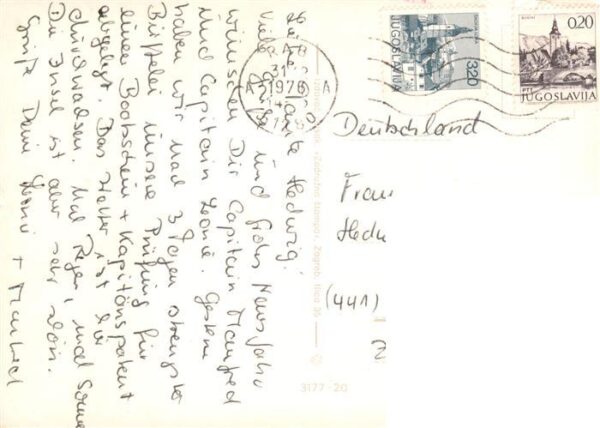 Liebe Tante Hedwig!
Viele Grüße und frohes Neues Jahr
wünschen Dir Capitain Manfred
und Capitain Leonie. Gestern
haben wir nach 3 Tagen strengster
Büffelei unsere Prüfung für
einen Bootsschein + Kapitänspatent
abgelegt. Das Wetter ist hier
durchwachsen. Mal Regen, mal Sonne
Die Insel ist aber sehr schön.
Grüße Deine + Manfred
31
1976
A A
3,20
JUGOSLAVIJA
0,20
PTT
JUGOSLAVIJA
Deutschland
Frau
Hedw
(441)
Zagreb, Ilica
3177-20